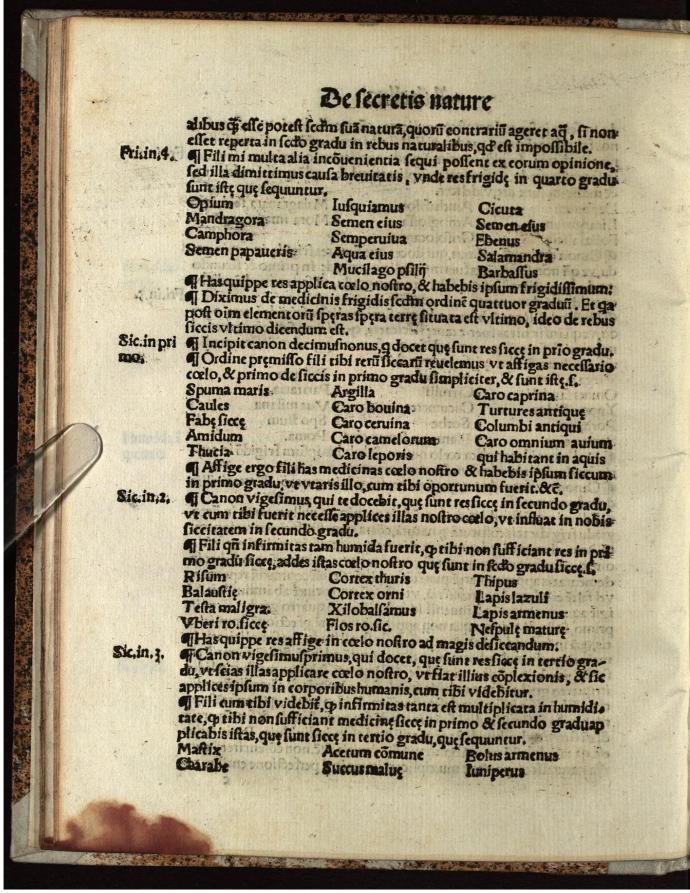 De secretis nature
alibus qͥ esse potest scd̃m suã naturã, quorũ contrariũ ageret aq̃, si non
esset reperta in scd̃o gradu in rebus naturalibus, qd̃ est impossibile.
Fri. in. 4.
¶ Fili mi multa alia incõuenientia sequi possent ex eorum opinione,
sed illa dimittimus causa breuitatis, vnde res frigidę in quarto gradu
sunt istę quę sequuntur.
Opium Iusquiamus Cicuta
Mandragora Semen eius Semen eius
Camphora Semperuiua Ebenus
Semen papaueris Aqua eius Salamandra
Mucilago psilij Barbassus
¶ Has quippe res applica cœlo nostro, & habebis ipsum frigidissimum:
¶ Diximus de medicinis frigidis scd̃m ordinẽ quattuor graduũ. Et qa
post oĩm elementorũ speras spera terrę situata est vltimo, ideo de rebus
siccis vltimo dicendum est.
Sic. in pri
mo.
¶ Incipit canon decimusnonus, q̃ docet quę sunt res siccę in prĩo gradu.
¶ Ordine pręmisso fili tibi rerũ siccarũ reuelemus vt affigas necessario
cœlo, & primo de siccis in primo gradu simpliciter, & sunt istę. s.
Spuma maris Argilla Caro caprina
Caules Caro bouina Turtures antiquę
Fabę siccę Caro ceruina Columbi antiqui
Amidum Caro camelorum Caro omnium auium
Thucia Caro leporis qui habitant in aquis
¶ Affige ergo fili has medicinas cœlo nostro & habebis ipsum siccum
in primo gradu, vt vtaris illo, cum tibi oportunum fuerit. &c̃.
Sic. in. 2.
¶ Canon vigesimus, qui te docebit, quę sunt res siccę in secundo gradu,
vt cum tibi fuerit necesse applices illas nostro cœlo, vt influat in nobis
siccitatem in secundo gradu.
¶ Fili qñ infirmitas tam humida fuerit, ꝙ tibi non sufficiant res in pri
mo gradu siccę, addes istas cœlo nostro quę sunt in scd̃o gradu siccę. s.
Risum Cortex thuris Thipus
Balaustię Cortex orni Lapis lazuli
Testa maligra. Xilobalsamus Lapis armenus
Vberi ro. siccę Flos ro. sic. Nespulę maturę
¶ Has quippe res affige in cœlo nostro ad magis desiccandum.
Sic. in. 3.
¶ Canon vigesimusprimus, qui docet, quę sunt res siccę in tertio gra-
du, vt scias illas applicare cœlo nostro, vt fiat illius cõplexionis, & sic
applices ipsum in corporibus humanis, cum tibi videbitur.
¶ Fili cum tibi videbit̃, ꝙ infirmitas tanta est multiplicata in humidi
tate, ꝙ tibi non sufficiant medicinę siccę in primo & secundo gradu ap
plicabis istas, quę sunt siccę in tertio gradu, quę sequuntur.
Mastix Acetum cõmune Bolus armenus
Charabe Succus maluę Iuniperus